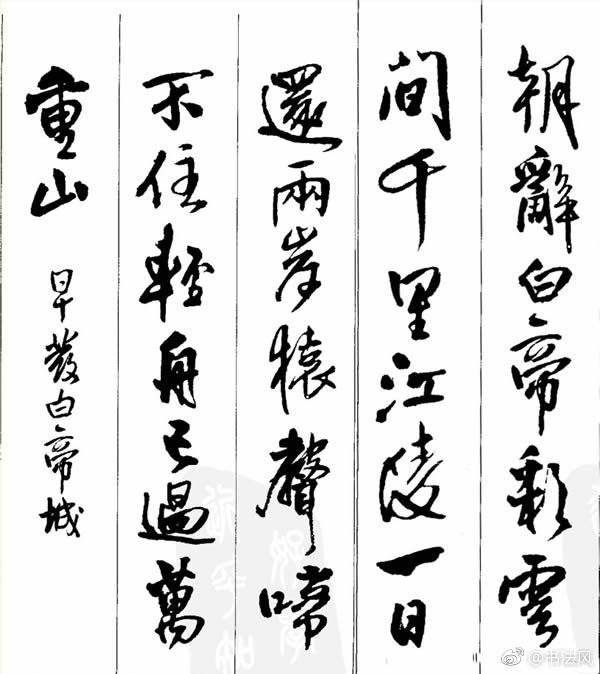 朝辭白帝彩雲
間千里江陵一日
還兩岸猿聲啼
不住輕舟已過萬
重山
早發白帝城
@书法网